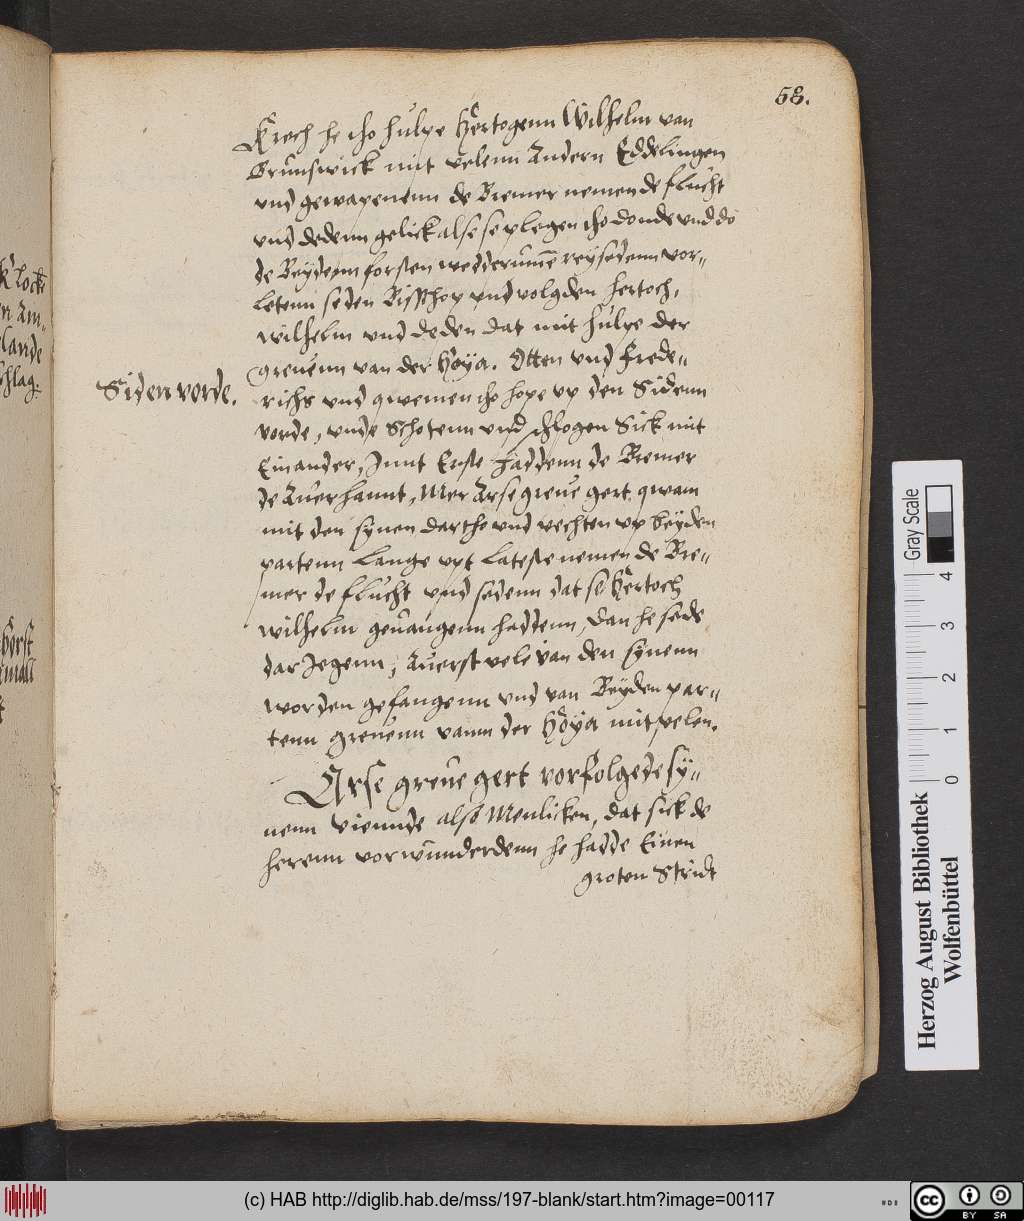 58.
Krech he tho hulpe Hertogenn Wilhelm van
Brunswick mit velenn Andern Eddelingen
vnd gewapenenn de Bremer nemen de flucht
vnd dedenn gelick alse se plegen tho donde vnd do
de Beydenn forsten wedderumme reysedenn vor-
letenn se den Bisschop vnd volgden hertoch,
wilhelm vnd deden dat mit hulpe der
greuenn van der Hoya. Otten vnd frede-
richs vnd qwemen tho hope vp den Sidenn
Siden vorde.
vorde, vnde Schotenn vnd schlogen Sick mit
Einander, Innt Erste haddenn de Bremer
de Auerhannt, Mer Arse greue gert qwam
mit den synen dartho vnd vechten vp beyden
partenn Lange vpt Lateste nemen de Bre-
mer de flucht vnd sedenn dat se Hertoch
wilhelm geuangenn haddenn, dan he sede
dar Jegenn, Auerst vele van den synenn
worden gefangenn vnd van Beyden par-
tenn greuenn vann der Hoya mit velen.
Arse greue gert vorfolgede sy-
nenn viennde also Menlicken, dat sick de
herenn vorwunderdenn he hadde Einen
groten Stridt
Herzog August Bibliothek
Wolfenbüttel
Gray Scale
0 1 2 3 4
(c) HAB http://diglib.hab.de/mss/197-blank/start.htm?image=00117
cc BY SA